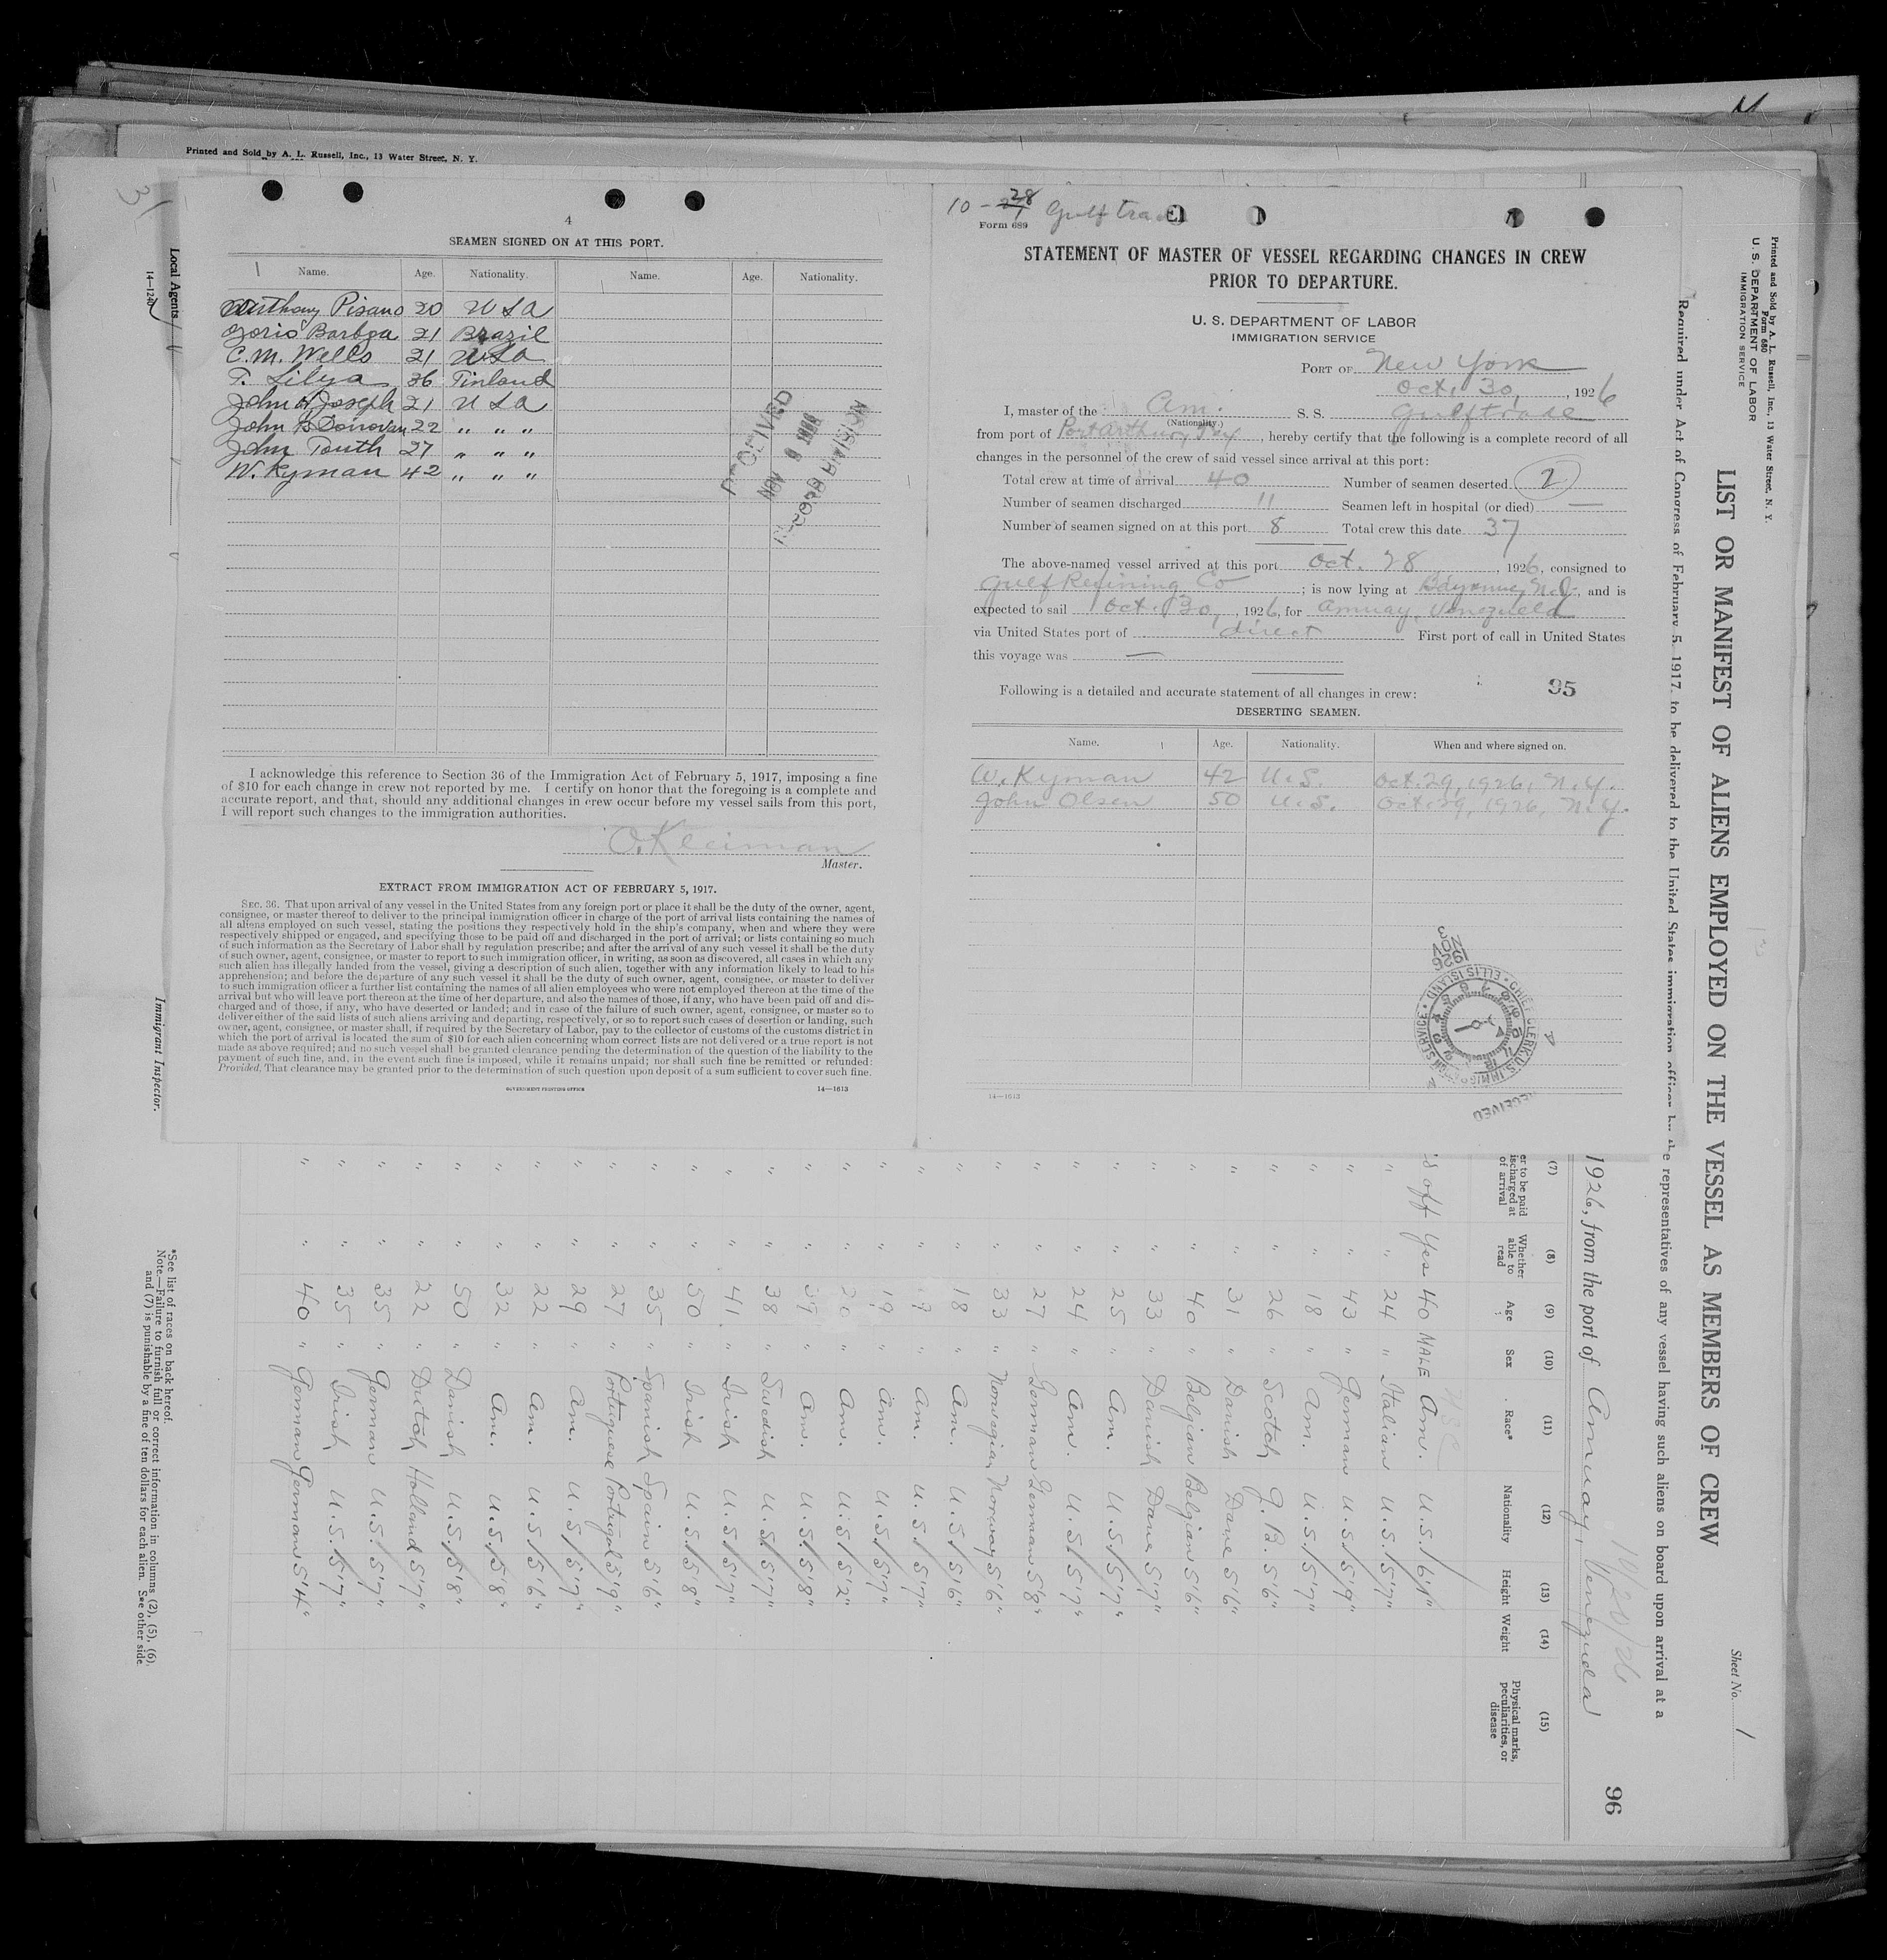 Printed and Sold by A. L. Russell, Inc., 13 Water Street, N. Y.
31
4
SEAMEN SIGNED ON AT THIS PORT.
Name. Age. Nationality. Name. Age. Nationality.
Anthony Pisano 20 USA
Zorio Barboza 21 Brazil
C. M. Wells 21 USA
T. Lilya 36 Finland
John H Joseph 21 USA
John B Donovan 22 " " "
John Touth 27 " " "
W. Kyman 42 " " "
RECEIVED
NOV
RECORD DIVISION
I acknowledge this reference to Section 36 of the Immigration Act of February 5, 1917, imposing a fine
of $10 for each change in crew not reported by me. I certify on honor that the foregoing is a complete and
accurate report, and that, should any additional changes in crew occur before my vessel sails from this port,
I will report such changes to the immigration authorities.
O. Kleiman
Master.
EXTRACT FROM IMMIGRATION ACT OF FEBRUARY 5, 1917.
SEC. 36. That upon arrival of any vessel in the United States from any foreign port or place it shall be the duty of the owner, agent,
consignee, or master thereof to deliver to the principal immigration officer in charge of the port of arrival lists containing the names of
all aliens employed on such vessel, stating the positions they respectively hold in the ship's company, when and where they were
respectively shipped or engaged, and specifying those to be paid off and discharged in the port of arrival; or lists containing so much
of such information as the Secretary of Labor shall by regulation prescribe; and after the arrival of any such vessel it shall be the duty
of such owner, agent, consignee, or master to report to such immigration officer, in writing, as soon as discovered, all cases in which any
such alien has illegally landed from the vessel, giving a description of such alien, together with any information likely to lead to his
apprehension; and before the departure of any such vessel it shall be the duty of such owner, agent, consignee, or master to deliver
to such immigration officer a further list containing the names of all alien employees who were not employed thereon at the time of the
arrival but who will leave port thereon at the time of her departure, and also the names of those, if any, who have been paid off and dis-
charged and of those, if any, who have deserted or landed; and in case of the failure of such owner, agent, consignee, or master so to
deliver either of the said lists of such aliens arriving and departing, respectively, or so to report such cases of desertion or landing, such
owner, agent, consignee, or master shall, if required by the Secretary of Labor, pay to the collector of customs of the customs district in
which the port of arrival is located the sum of $10 for each alien concerning whom correct lists are not delivered or a true report is not
made as above required; and no such vessel shall be granted clearance pending the determination of the question of the liability to the
payment of such fine, and, in the event such fine is imposed, while it remains unpaid; nor shall such fine be remitted or refunded:
Provided, That clearance may be granted prior to the determination of such question upon deposit of a sum sufficient to cover such fine.
GOVERNMENT PRINTING OFFICE 14—1613
10-28 Gulftrade
Form 689
STATEMENT OF MASTER OF VESSEL REGARDING CHANGES IN CREW
PRIOR TO DEPARTURE.
U. S. DEPARTMENT OF LABOR
IMMIGRATION SERVICE
PORT OF New York
Oct. 30, , 1926
I, master of the Am. S. S. Gulftrade
(Nationality.)
from port of Port Arthur, Tex , hereby certify that the following is a complete record of all
changes in the personnel of the crew of said vessel since arrival at this port:
Total crew at time of arrival 40 Number of seamen deserted 2
Number of seamen discharged 11 Seamen left in hospital (or died) —
Number of seamen signed on at this port 8 Total crew this date 37
The above-named vessel arrived at this port Oct. 28 , 1926, consigned to
Gulf Refining Co ; is now lying at Bayonne, N.J., and is
expected to sail Oct. 30, , 1926, for Amuay, Venezuela
via United States port of direct First port of call in United States
this voyage was —
Following is a detailed and accurate statement of all changes in crew: 95
DESERTING SEAMEN.
Name. Age. Nationality. When and where signed on.
W. Kyman 42 U.S. Oct. 29, 1926, N.Y.
John Olsen 50 U.S. Oct. 29, 1926, N.Y.
1926 NOV 3
CHIEF CLERK, U.S. IMMIGRATION SERVICE • ELLIS ISLAND
RECEIVED
14—1613
Printed and Sold by A. L. Russell, Inc., 13 Water Street, N. Y.
Form 680
U. S. DEPARTMENT OF LABOR
IMMIGRATION SERVICE
LIST OR MANIFEST OF ALIENS EMPLOYED ON THE VESSEL AS MEMBERS OF CREW
Sheet No. 1
Required under Act of Congress of February 5, 1917, to be delivered to the United States immigration officer by the representatives of any vessel having such aliens on board upon arrival at a
1926, from the port of Amuay, Venezuela
96
(7) (8) (9) (10) (11) (12) (13) (14) (15)
er to be paid
ischarged at
of arrival
Whether able to read
Age
Sex
Race*
Nationality
Height
Weight
Physical marks, peculiarities, or disease
d off Yes 40 MALE Am. U.S. 6'1"
" " 24 " Italian U.S. 5'7"
" " 43 " German U.S. 5'9"
" " 18 " Am. U.S. 5'7"
" " 26 " Scotch G.B. 5'6"
" " 31 " Danish Dane 5'6"
" " 40 " Belgian Belgian 5'6"
" " 33 " Danish Dane 5'7"
" " 25 " Am. U.S. 5'7"
" " 24 " Am. U.S. 5'7"
" " 27 " German German 5'8"
" " 33 " Norwegian Norway 5'6"
" " 18 " Am. U.S. 5'6"
" " 19 " Am. U.S. 5'7"
" " 19 " Am. U.S. 5'7"
" " 20 " Am. U.S. 5'2"
" " 39 " Am. U.S. 5'8"
" " 38 " Swedish U.S. 5'7"
" " 41 " Irish U.S. 5'7"
" " 50 " Irish U.S. 5'8"
" " 35 " Spanish Spain 5'6"
" " 27 " Portuguese Portugal 5'9"
" " 29 " Am. U.S. 5'7"
" " 22 " Am. U.S. 5'6"
" " 32 " Am. U.S. 5'8"
" " 50 " Danish U.S. 5'8"
" " 22 " Dutch Holland 5'7"
" " 35 " German U.S. 5'7"
" " 35 " Irish U.S. 5'7"
" " 40 " German German 5'4"
Local Agents
14—1240
Immigrant Inspector.
*See list of races on back hereof.
Note.—Failure to furnish full or correct information in columns (2), (5), (6)
and (7) is punishable by a fine of ten dollars for each alien. See other side